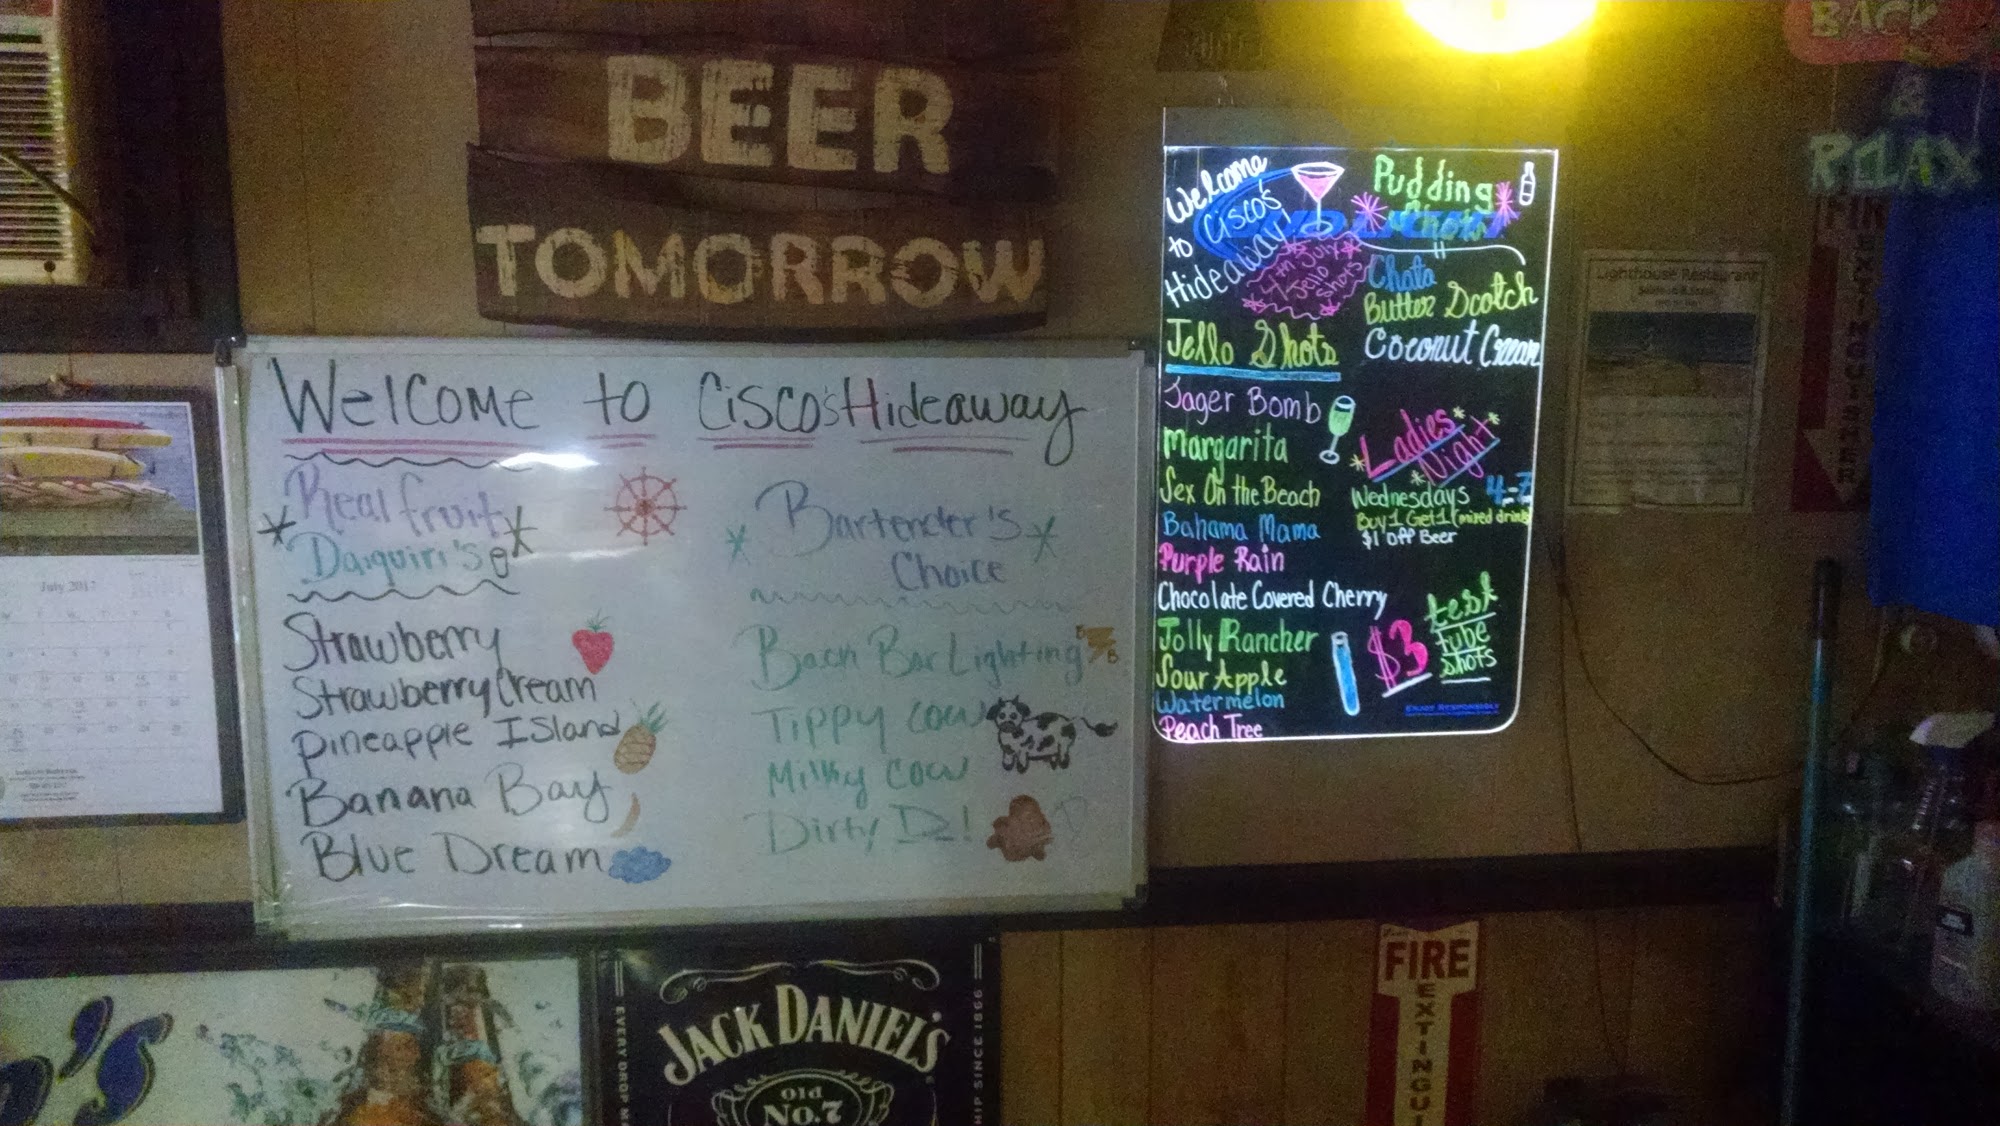 BEER
TOMORROW
Welcome to Cisco's Hideaway
Real fruit
Daiquiri's
Strawberry
Strawberry Cream
Pineapple Island
Banana Bay
Blue Dream
Bartender's
Choice
Back Bar Lighting
B
B
Tippy Cow
Milky Cow
Dirty Dz!
Welcome
to Cisco's
Hideaway!
4th July
Jello
Shots
Jello Shots
Jager Bomb
Margarita
Sex On the Beach
Bahama Mama
Purple Rain
Chocolate Covered Cherry
Jolly Rancher
Sour Apple
Watermelon
Peach Tree
Pudding
Shots
Chata
Butter Scotch
Coconut Cream
Ladies
Night
Wednesdays 4-7
Buy 1 Get 1 (mixed drinks
$1 off Beer
$3 test
tube
shots
ENJOY RESPONSIBLY
Lighthouse Restaurant
BACK
&
RELAX
FIRE
EXTINGUISHER
July 2017
's
EVERY DROP
JACK DANIEL'S
Old
No.7
SINCE 1866
FIRE
EXTINGUI